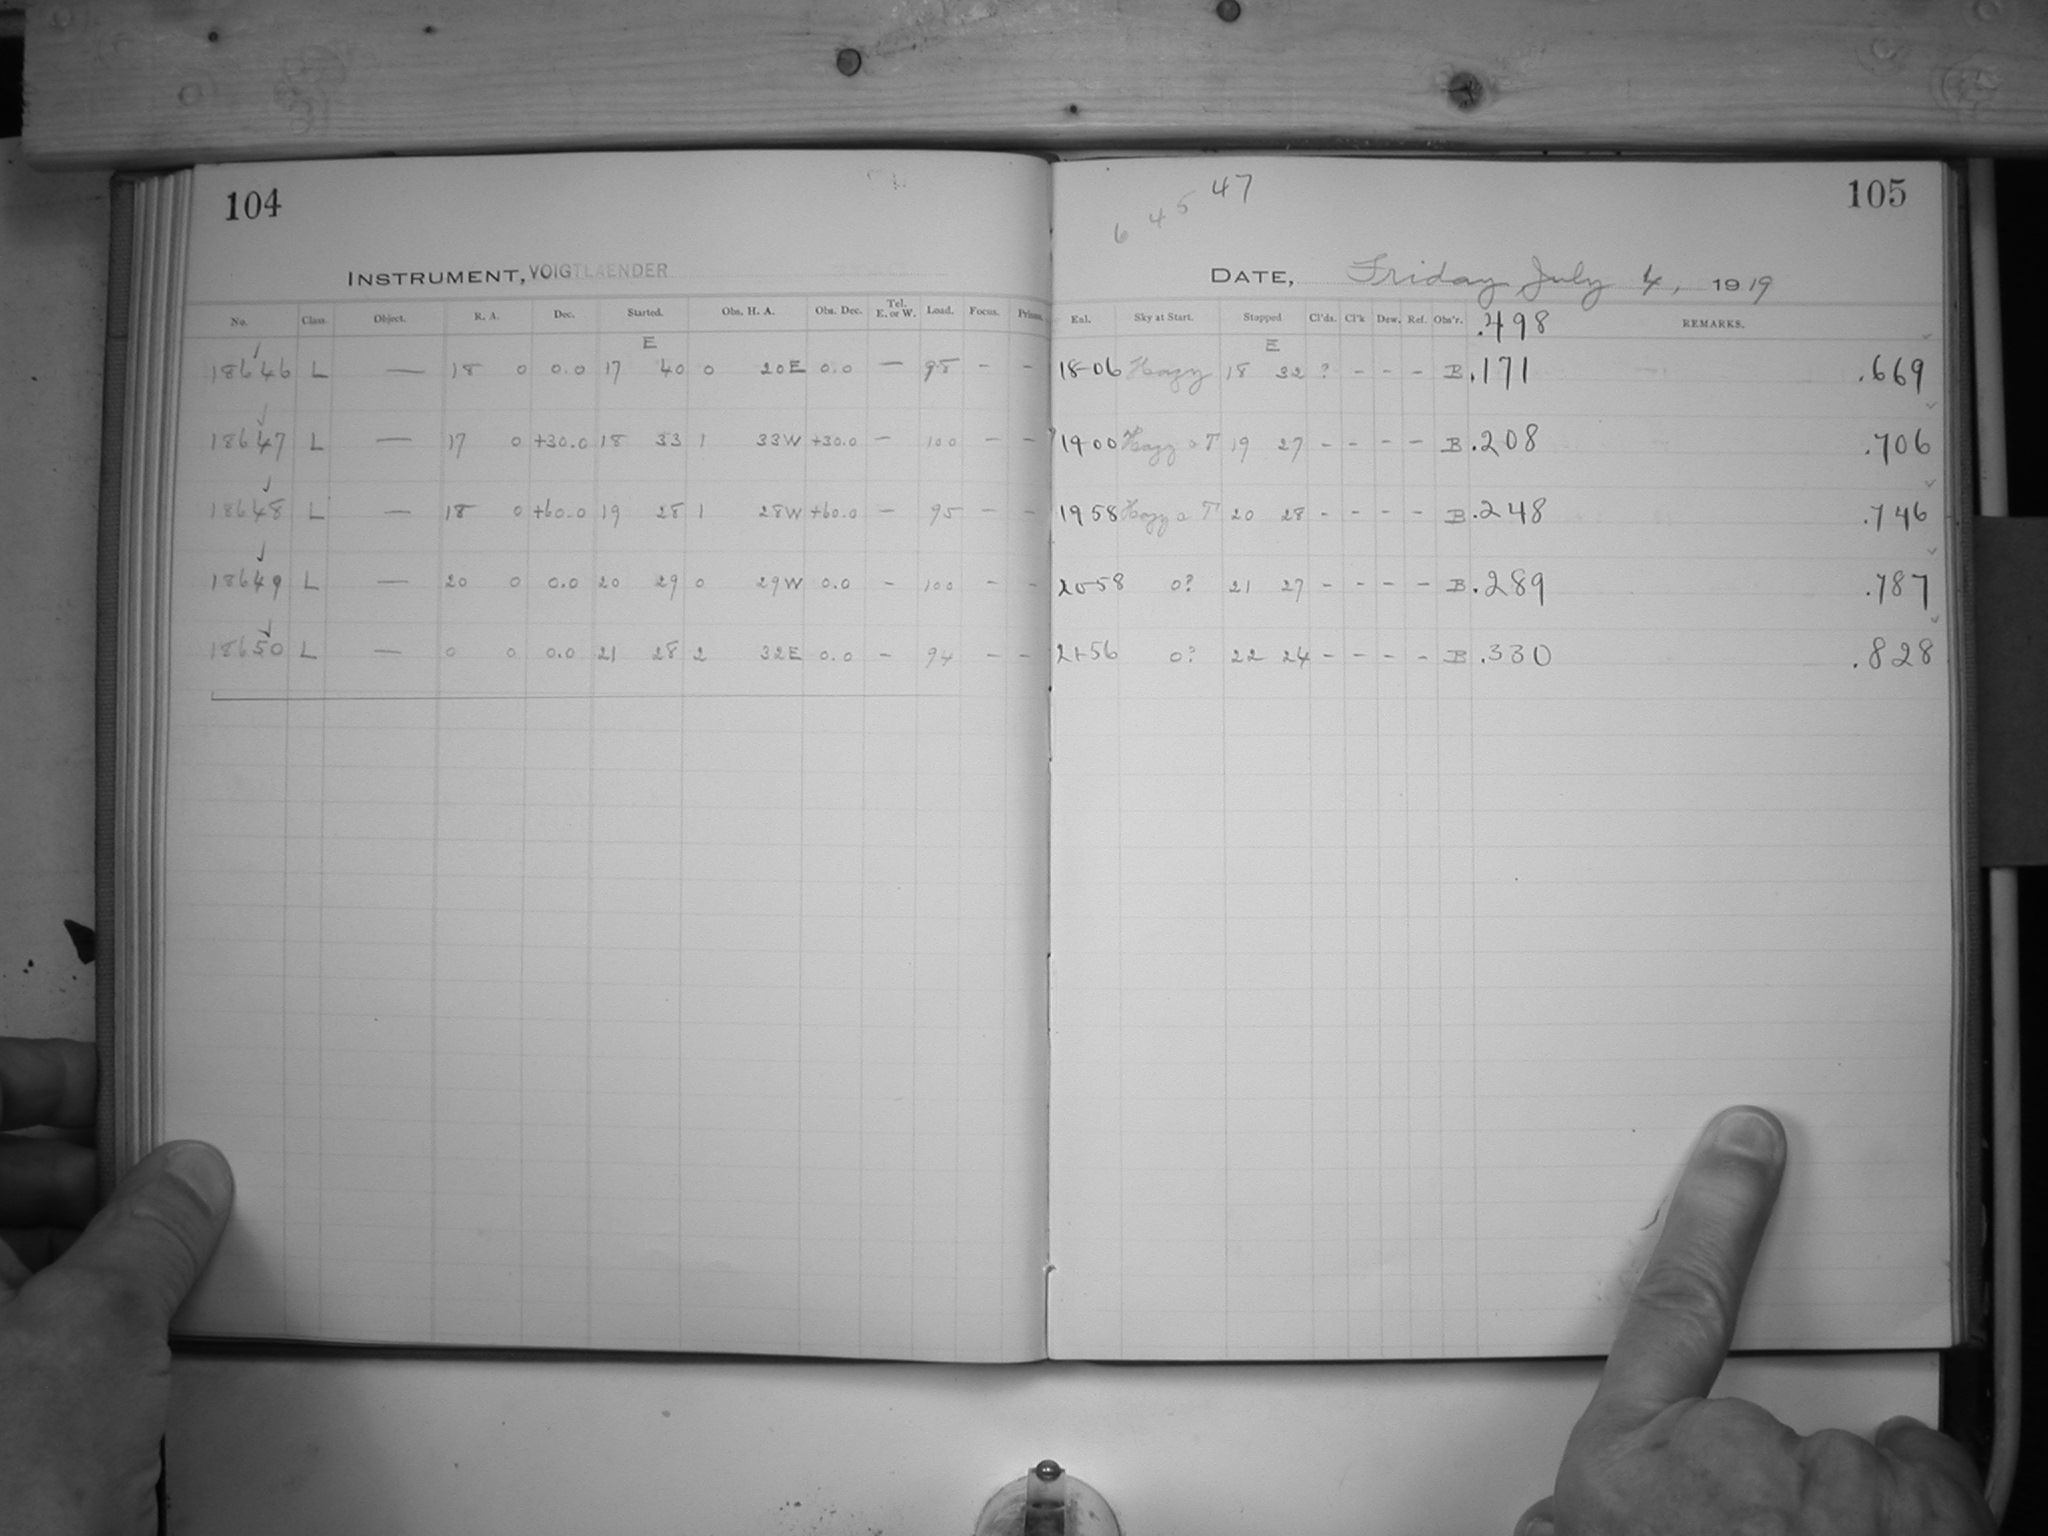 104
INSTRUMENT, VOIGTLAENDER
No. Class. Object. R. A. Dec. Started. Obs. H. A. Obs. Dec. Tel. E. or W. Load. Focus. Prisms.
E
18646 L — 18 0 0.0 17 40 0 20E 0.0 — 95 - -
18647 L — 17 0 +30.0 18 33 1 33W +30.0 - 100 - -
18648 L — 18 0 +60.0 19 28 1 28W +60.0 - 95 - -
18649 L — 20 0 0.0 20 29 0 29W 0.0 - 100 - -
18650 L — 0 0 0.0 21 28 2 32E 0.0 - 94 - -
105
6 4 5 47
DATE, Friday July 4, 1919
Eal. Sky at Start. Stopped Cl'ds. Cl'k Dew. Ref. Obs'r. .498 REMARKS.
E
18-06 Hazy 18 32 ? - - - B .171 .669
19-00 Hazy o T 19 27 - - - - B .208 .706
19 58 Hazy o T 20 28 - - - - B .248 .746
20-58 0? 21 27 - - - - B .289 .787
21-56 0? 22 24 - - - - B .330 .828